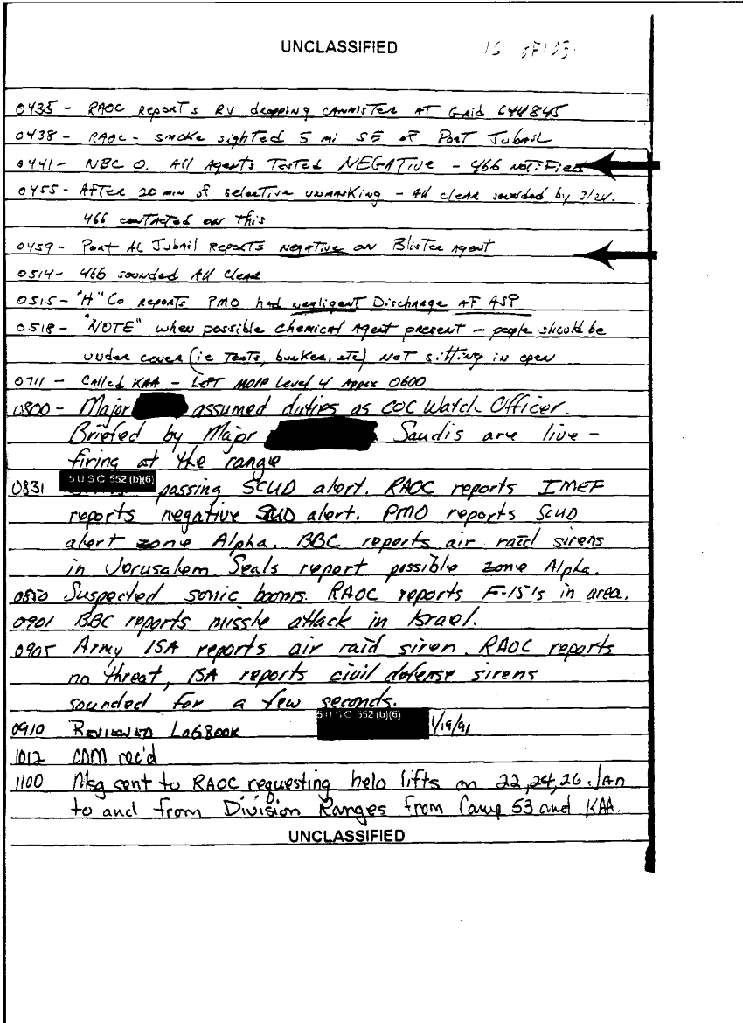 UNCLASSIFIED
0435 - RAOC reports RV dropping cannister AT Grid 644845
0438 - RAOC - smoke sighted 5 mi SE of Port Jubail
0441 - NBC O. All Agents Tested NEGATIVE - 466 Notified
0455 - After 20 min of selective unmasking - All clear sounded by 3/24.
466 contacted on this
0459 - Port Al Jubail Reports negative on Blister Agent
0514 - 466 sounded All Clear
0515 - "H" Co reports PMO had negligent Discharge AT ASP
0518 - "NOTE" when possible Chemical Agent present - people should be
under cover (ie Tents, bunker, etc) NOT sitting in open
0711 - Called KAA - Left MOPP Level 4 Approx 0600
0800 - Major assumed duties as COC Watch Officer.
Briefed by Major Saudis are live-
firing at the range
0831 5 U S C 552 (b)(6) passing SCUD alert. RAOC reports IMEF
reports negative SCUD alert. PMO reports SCUD
alert zone Alpha. BBC reports air raid sirens
in Jerusalem Seals report possible zone Alpha.
Suspected sonic booms. RAOC reports F-15's in area.
0901 BBC reports missle attack in Israel.
0905 Army ISA reports air raid siren. RAOC reports
no threat, ISA reports civil defense sirens
sounded for a few seconds.
0910 Reviewed Logbook 5 U S C 552 (b)(6) 1/19/91
1012 CDM rec'd
1100 Msg sent to RAOC requesting helo lifts on 22, 24, 26 Jan
to and from Division Ranges from Camp 53 and KAA.
UNCLASSIFIED